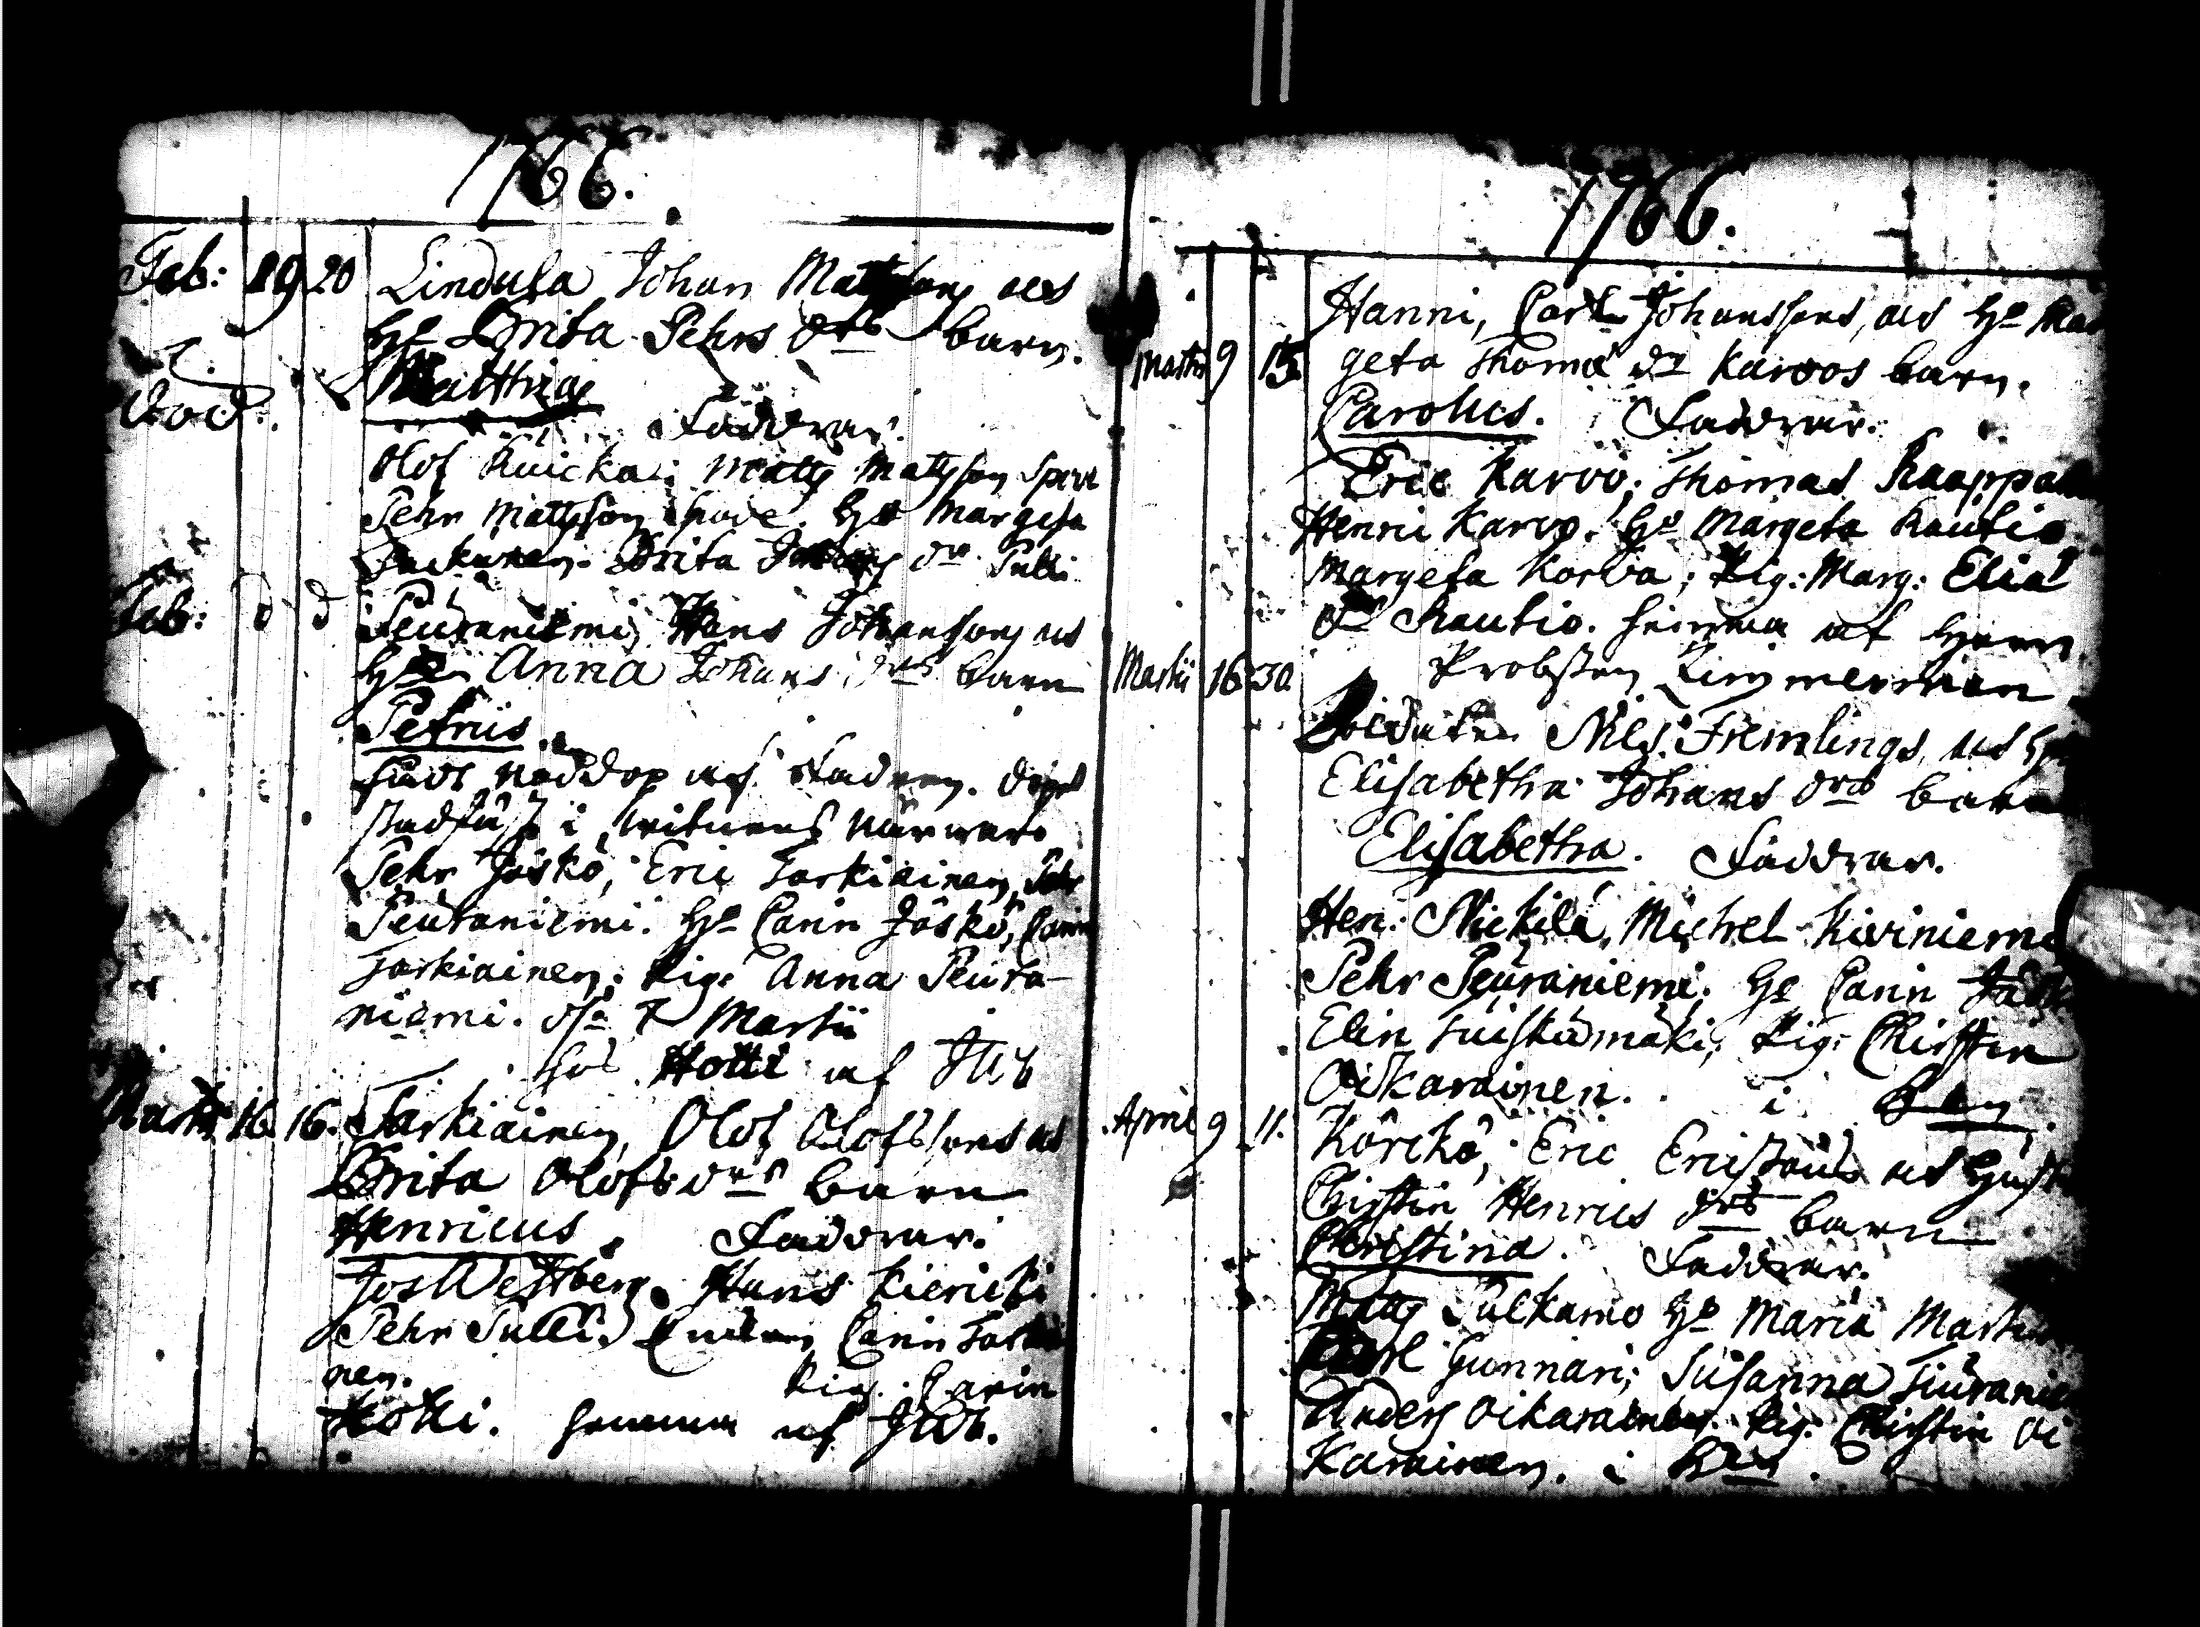 1766.
Feb: 19 20 Lindula Johan Mattssons och
Hu Brita Pehrs drs barn.
död. Matthias
Faddrar.
Olof Kuicka; Matts Mattsson
Pehr Mattsson Hu Margeta
Brita dr Sulli
Feb: d d Peuraniemi, Hans Johanssons och
Hu Anna Johans drs barn
Petrus
nöddop af fadren. dopet
stadfäst i witnens närwaro
Pehr Jäskö, Eric Tarkiainen, Pehr
Peuraniemi. Hu Carin Jäskö, Carin
Tarkiainen; Pig: Anna Peura-
niemi. 7 Martii
hos Hotti af
Martii 16 16. Tarkiainen, Olof Olofssons och
Brita Olofs drs barn
Henricus. Faddrar.
Jos Westberg. Hans Kiericki
Pehr Sulli. Carin Tarkiai
nen. Pig. Carin
Hotti. hemma af
1766.
Hanni, Carl Johanssons, och Hu Mar
Martii 9 15 geta Thomæ dr Karvos barn.
Carolus. Faddrar.
Eric Karvo; Thomas Kaappa
Henric Karvo. Hu Margeta Rautio
Margeta Korva; Pig: Marg: Eliæ
dr Rautio. hemma af Herr
Probsten Zimmerman
Martii 16 30 Soldaten Nils Fremlings, och Hu
Elisabetha Johans drs barn
Elisabetha. Faddrar.
Hen: Nickilä, Michel Kiviniemi
Pehr Peuraniemi; Hu Carin Jäsk
Elin Tuiskumäki; Pig: Christin
Oikarainen. i
April 9 11. Körckö, Eric Ericssons och Hust
Christin Henrics drs barn
Christina. Faddrar.
Matts Pulkamo Hu Maria Mart
Carl Gunnari; Susanna Piuranie
Anders Oikarainen Pig: Christin Oi
Karainen. i